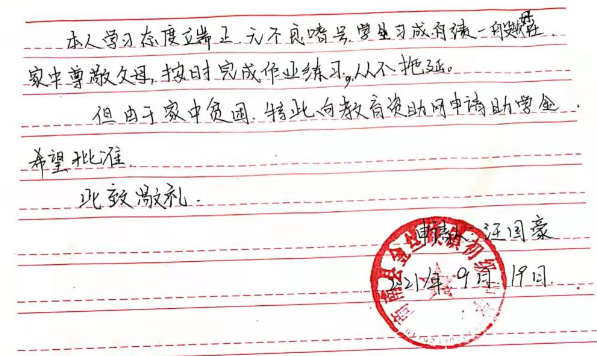 本人学习态度端正,无不良嗜号,学生习成有绩一般在
家中尊敬父母,按时完成作业练习,从不拖延。
但由于家中贫困.特此向教育资助网申请助学金.
希望批准.
此致敬礼.
申请人:汪国豪
2021年9月19日.